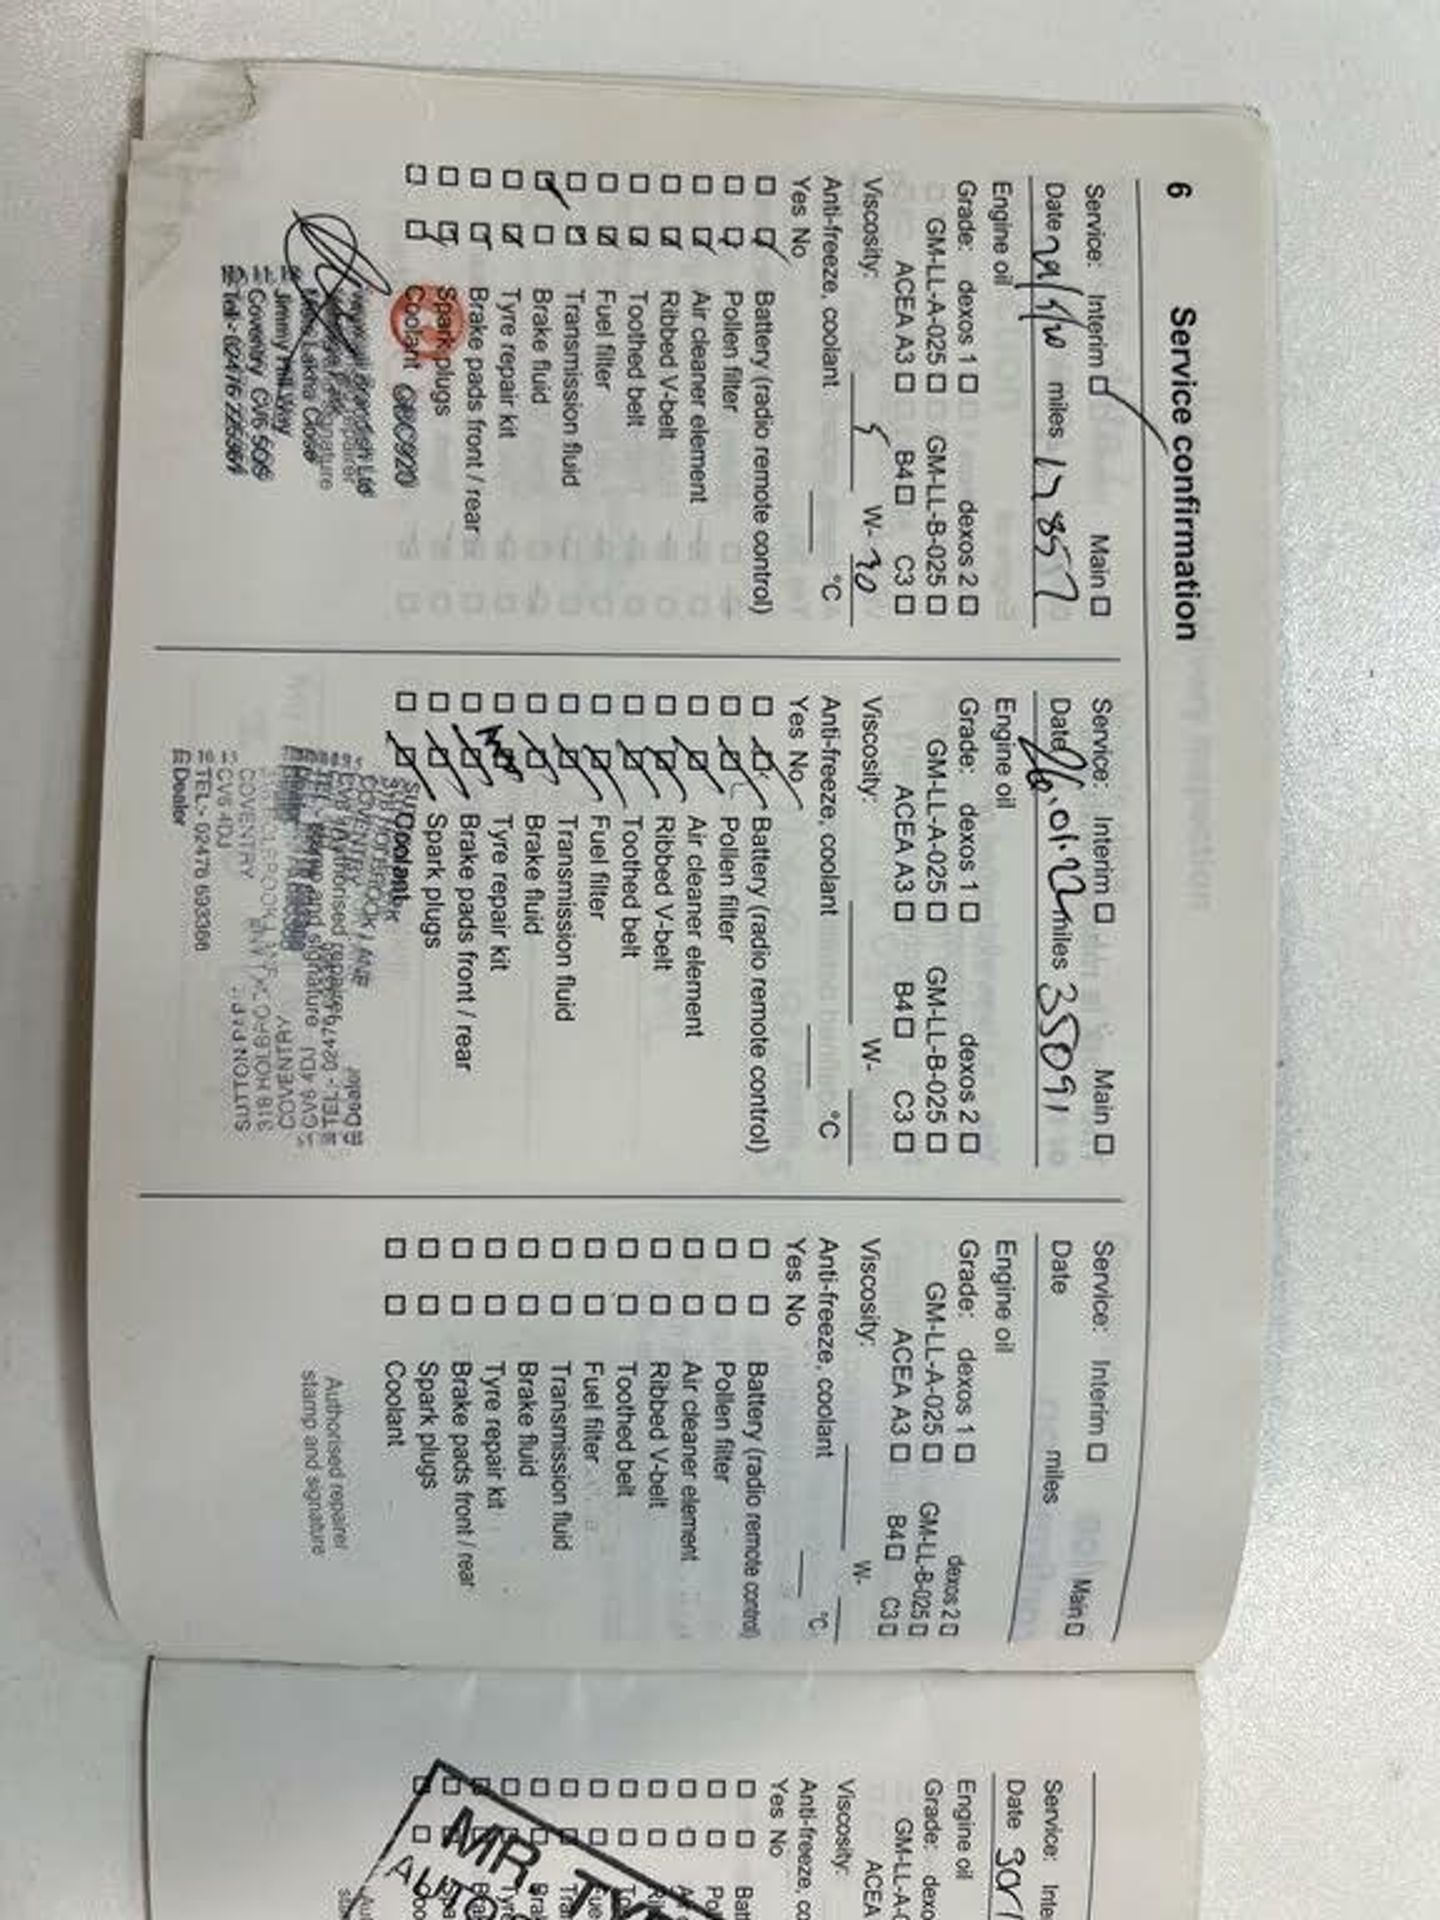 6 Service confirmation
Service: Interim Main
Date miles 17857
Engine oil
Grade: dexos 1 dexos 2
GM-LL-A-025 GM-LL-B-025
ACEA A3 B4 C3
Viscosity: 5 W- 30
Anti-freeze, coolant °C
Yes No
Battery (radio remote control)
Pollen filter
Air cleaner element
Ribbed V-belt
Toothed belt
Fuel filter
Transmission fluid
Brake fluid
Tyre repair kit
Brake pads front / rear
Spark plugs
Coolant
Jimmy Hill Way
Coventry CV6
Service: Interim Main
Date 26.01.22 miles 35091
Engine oil
Grade: dexos 1 dexos 2
GM-LL-A-025 GM-LL-B-025
ACEA A3 B4 C3
Viscosity: W-
Anti-freeze, coolant °C
Yes No
Battery (radio remote control)
Pollen filter
Air cleaner element
Ribbed V-belt
Toothed belt
Fuel filter
Transmission fluid
Brake fluid
Tyre repair kit
Brake pads front / rear
Spark plugs
Coolant
COVENTRY
CV6 4DJ
TEL:- 02476
Dealer
Service: Interim Main
Date miles
Engine oil
Grade: dexos 1 dexos 2
GM-LL-A-025 GM-LL-B-025
ACEA A3 B4 C3
Viscosity: W-
Anti-freeze, coolant °C
Yes No
Battery (radio remote control)
Pollen filter
Air cleaner element
Ribbed V-belt
Toothed belt
Fuel filter
Transmission fluid
Brake fluid
Tyre repair kit
Brake pads front / rear
Spark plugs
Coolant
Authorised repairer
stamp and signature
Service: Inte
Date
Engine oil
Grade: dexo
GM-LL-A-0
ACEA
Viscosity:
Anti-freeze, co
Yes No
Batt
Pol
MR. TY
AUTO